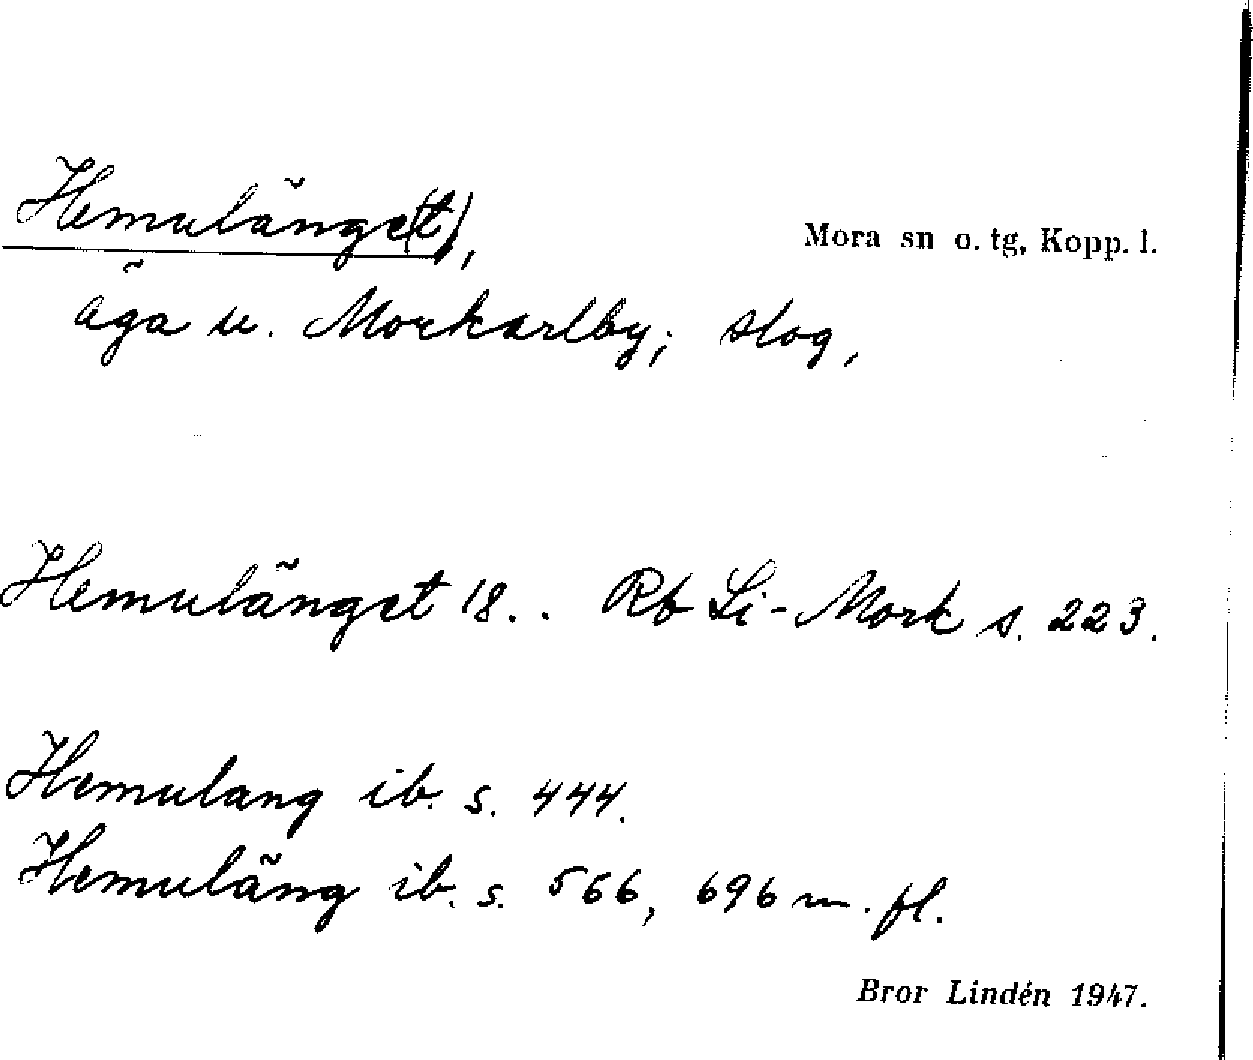 Hemulänge(t),
Mora sn o. tg, Kopp. l.
äga u. Morkarlby; slog,
Hemulänget 18.. Rb Li-Mork s. 223.
Hemulang ib. s. 444.
Hemuläng ib. s. 566, 696 m. fl.
Bror Lindén 1947.